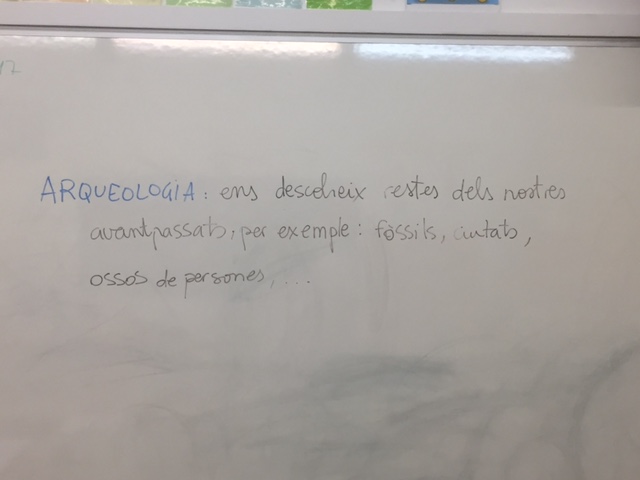 ARQUEOLOGIA: ens descobreix restes dels nostres
avantpassats, per exemple: fòssils, ciutats,
ossos de persones, ...